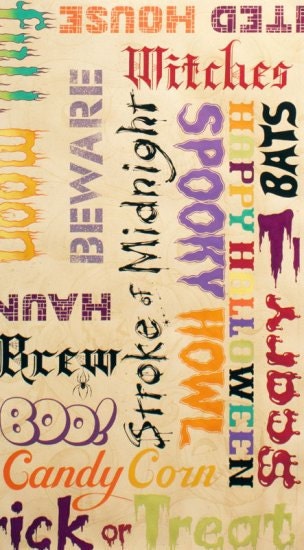 TED HOUSE
Witches
Full
moon
BEWARE
Stroke of Midnight
SPOOKY HOWL
HAPPY HALLOWEEN
BATS
Scary
HAUN
Brew
BOO!
Candy Corn
rick or Treat